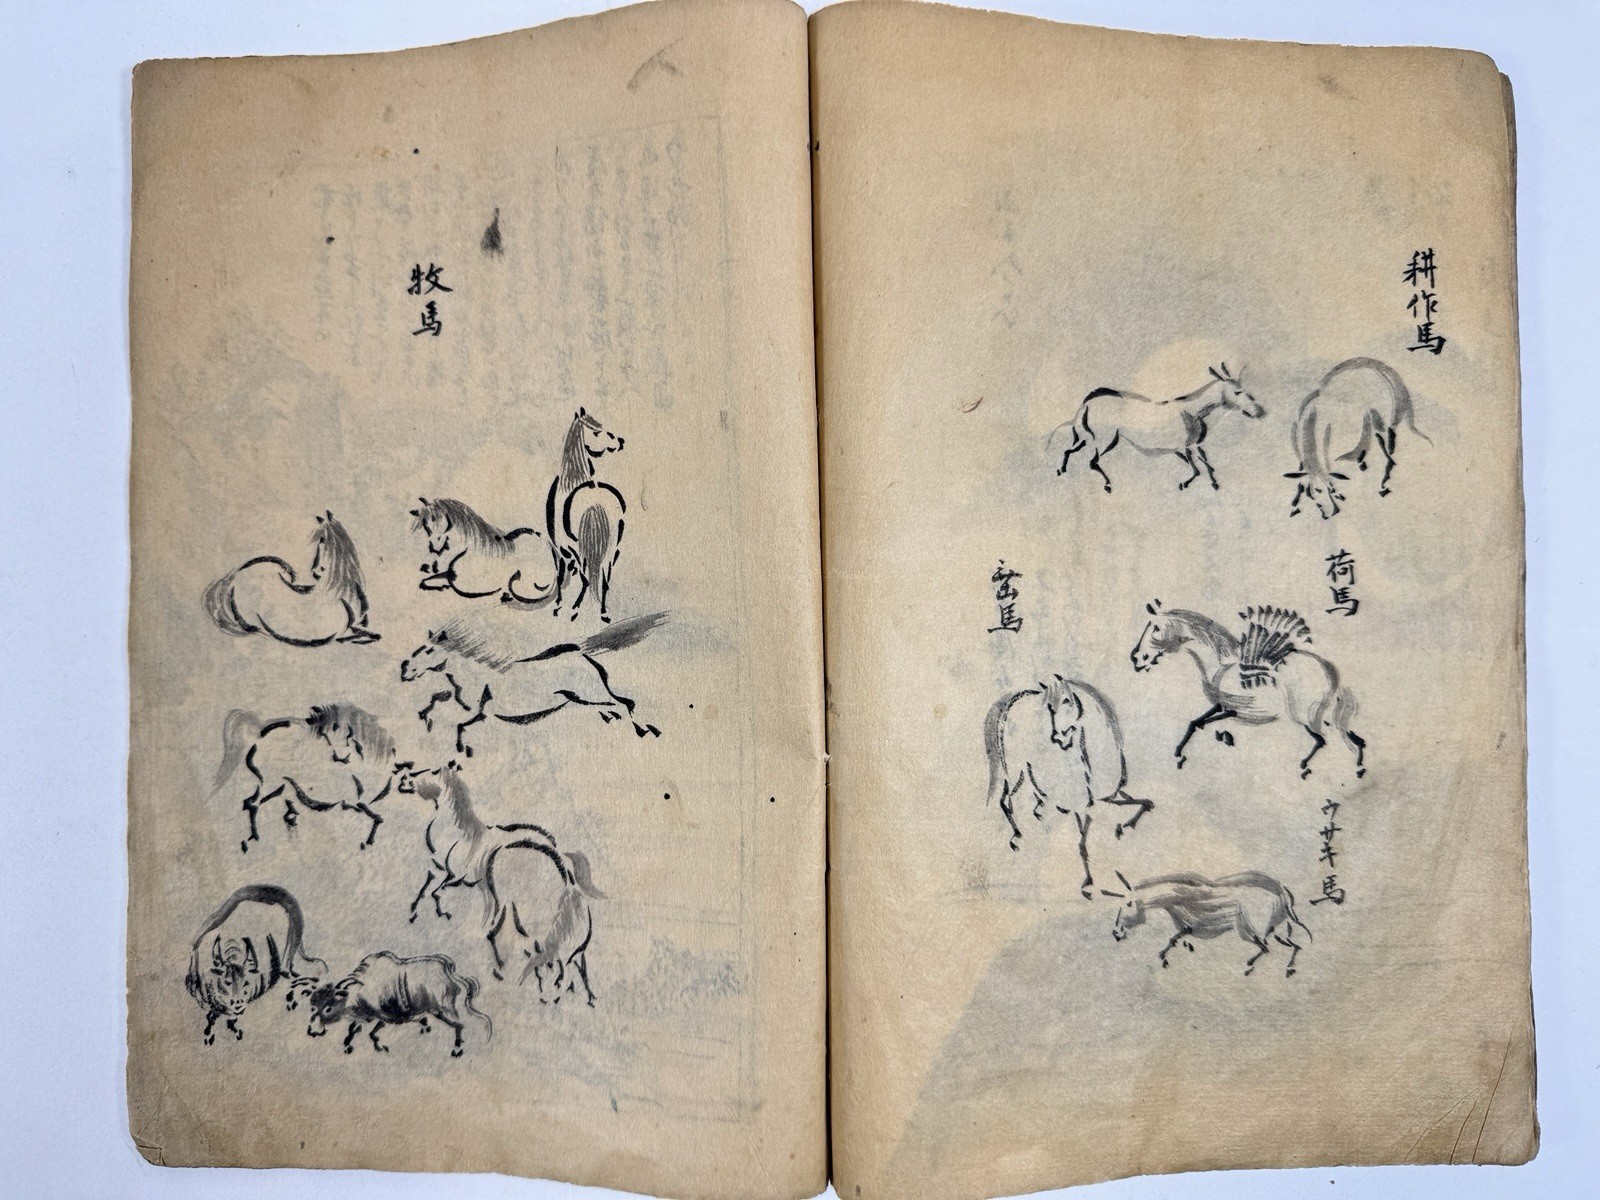 耕作馬
荷馬
ウサキ馬
馬
牧馬